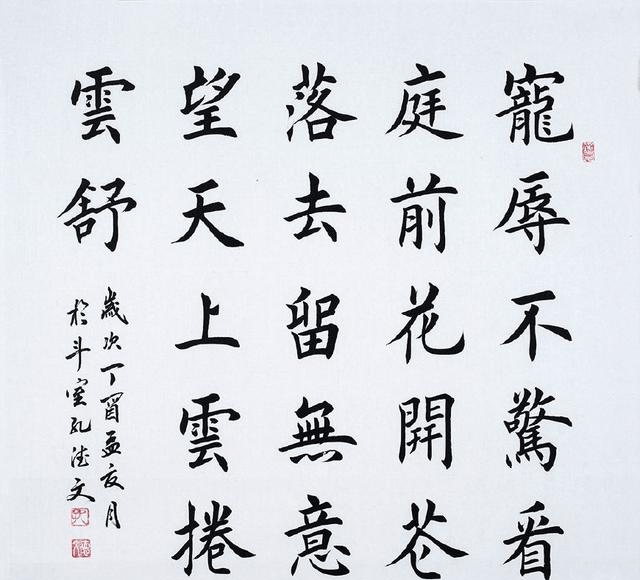 寵辱不驚看
庭前花開花
落去留無意
望天上雲捲
雲舒
歲次丁酉孟夏月
於斗室孔德文